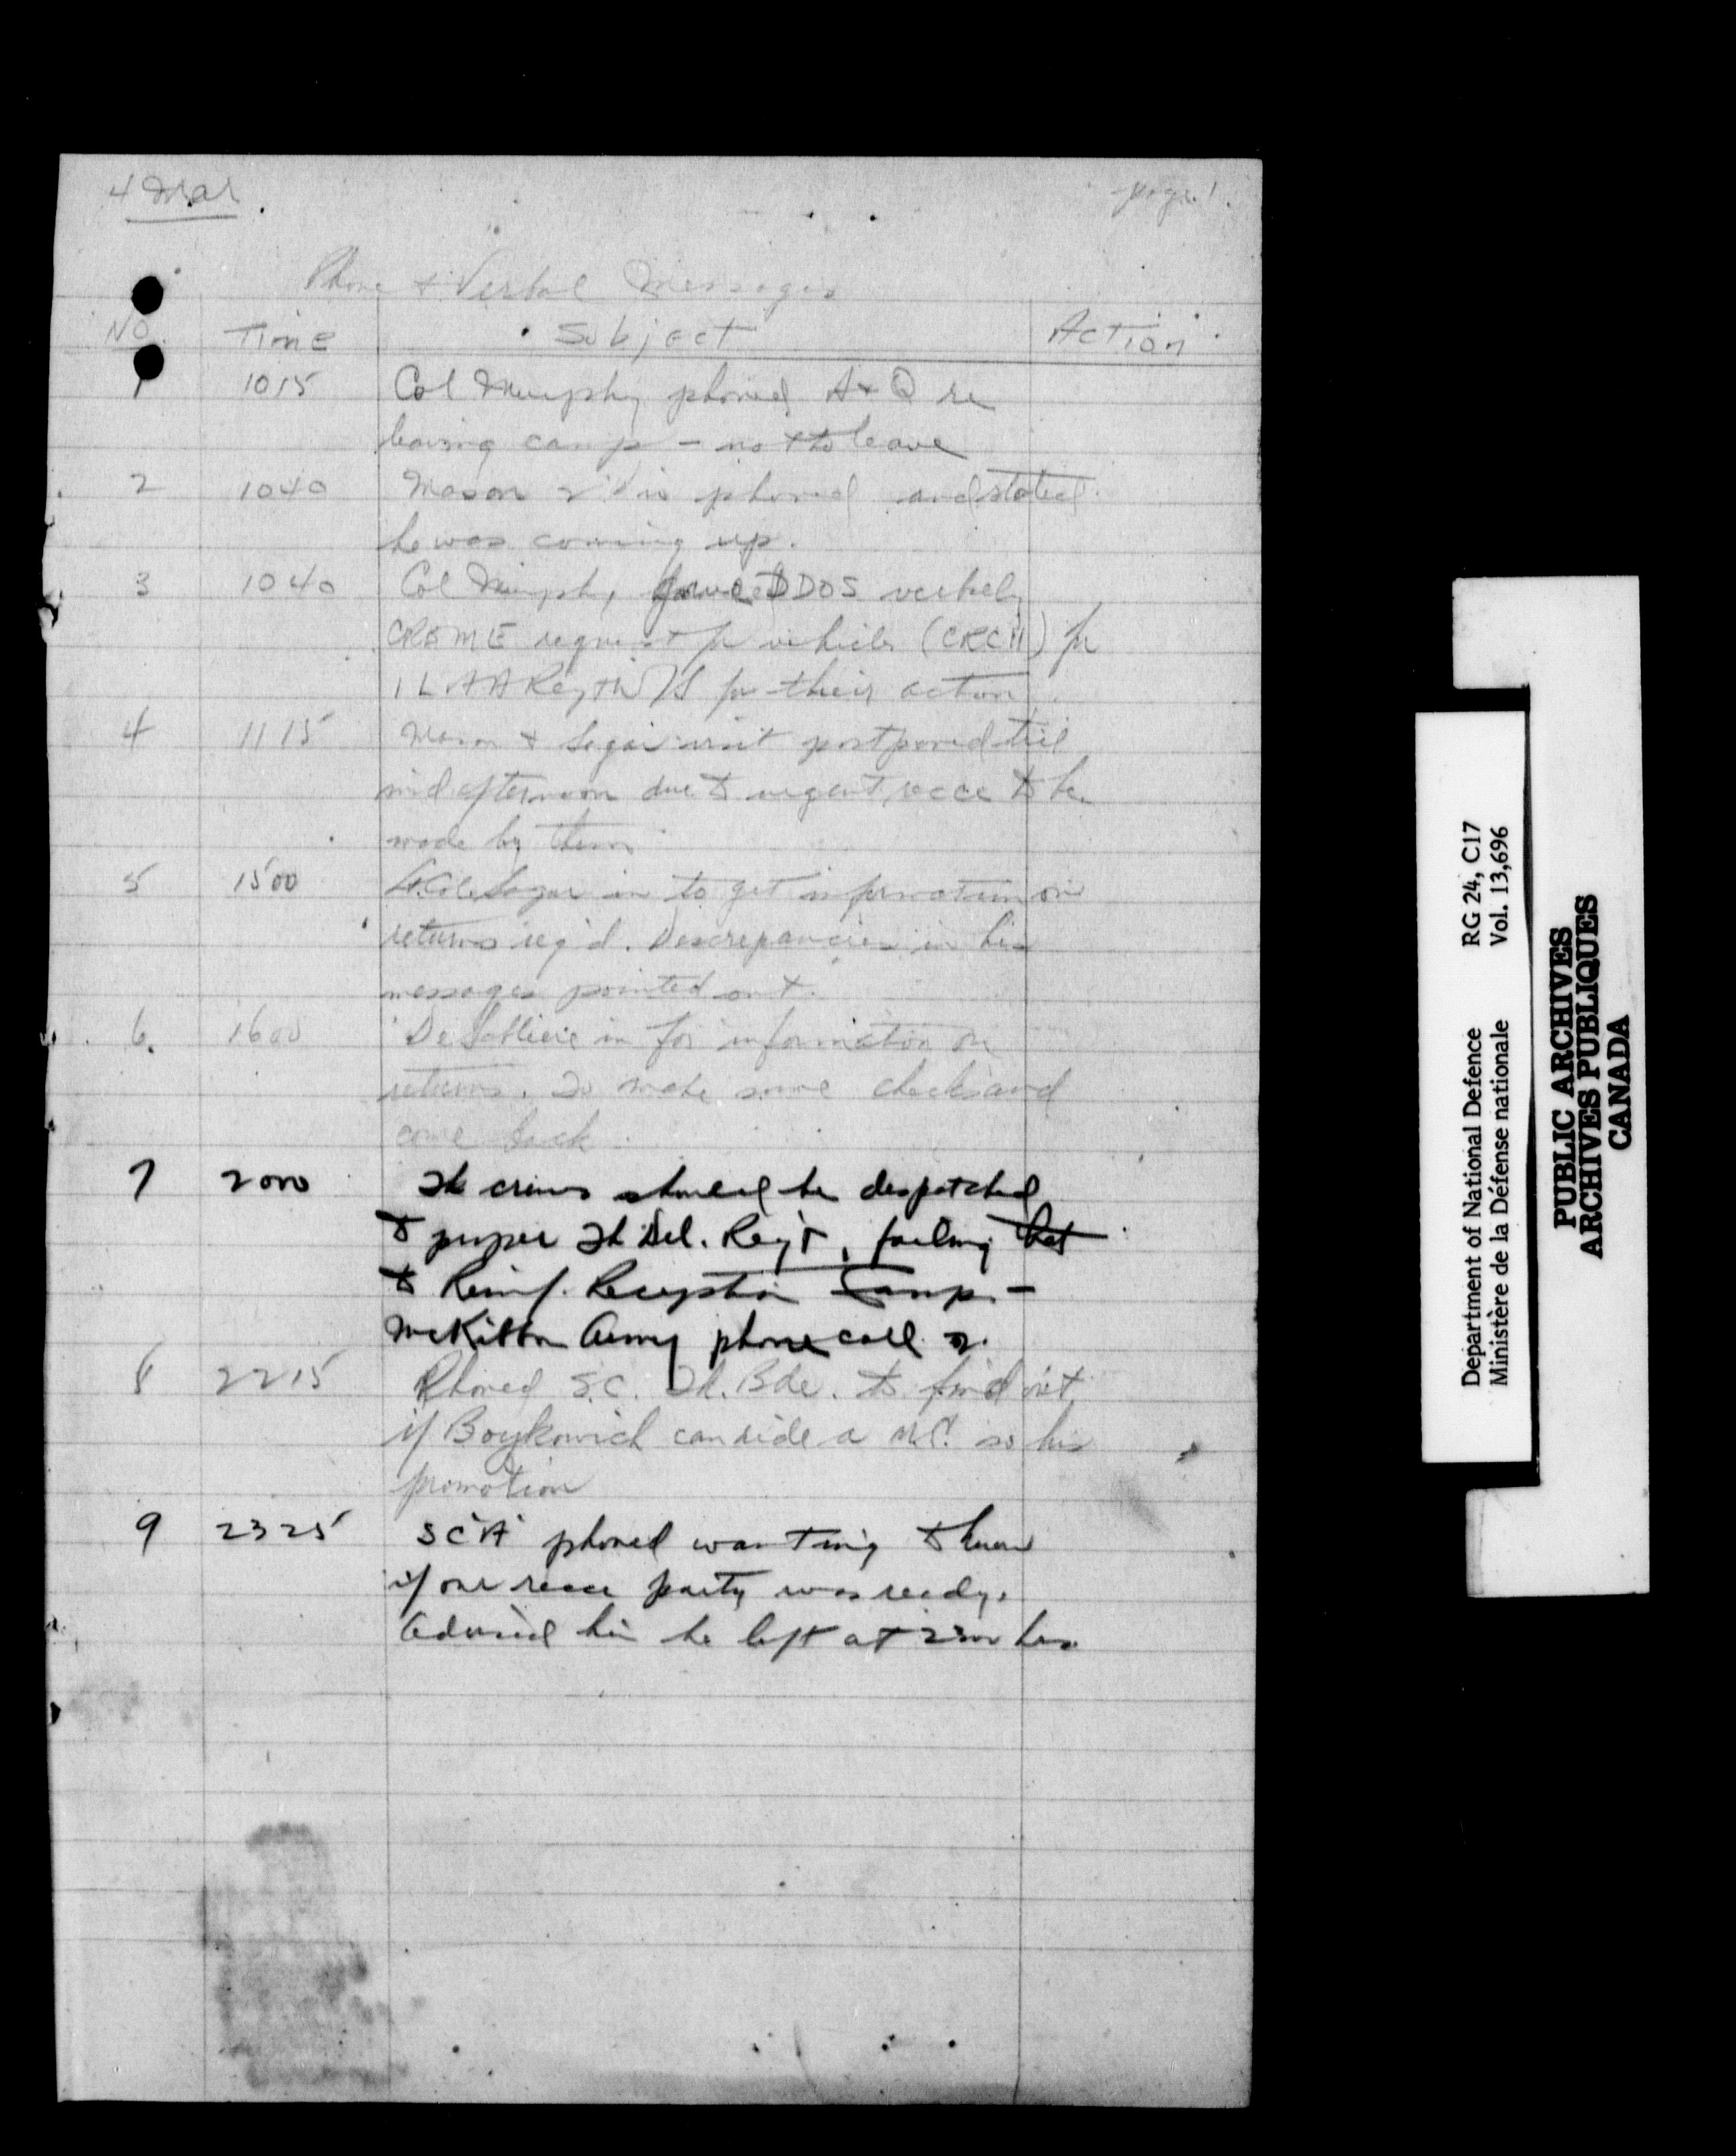 4 Mar.
page 1.
Phone & Verbal Messages
No. Time Subject Action
1 1015 Col Murphy phoned A & Q re
leaving camp - not to leave
2 1040 Mason phoned and stated
he was coming up.
3 1040 Col Murphy DDOS verbally
CREME request for vehicles for
1 LAA Regt for their action
4 1115 Mason & visit postponed till
mid afternoon due to urgent recce to be
made by them
5 1500 Lt. Col. in to get information on
returns req'd. Descrepancies in his
messages pointed out.
6. 1600 in for information on
returns. To make some checks and
come back.
7 2000 Tk crews should be despatched
to proper Tk Del. Regt, failing that
to Reinf. Reception Camp. -
Army phone call
8 2215 Phoned S.C. Tk. Bde. to find out
if Boykowich can ride a M.C. so his
promotion
9 2325 SC 'A' phoned wanting to know
if our recce party was ready.
Advised him he left at 2300 hrs
Department of National Defence RG 24, C17
Ministère de la Défense nationale Vol. 13,696
PUBLIC ARCHIVES
ARCHIVES PUBLIQUES
CANADA